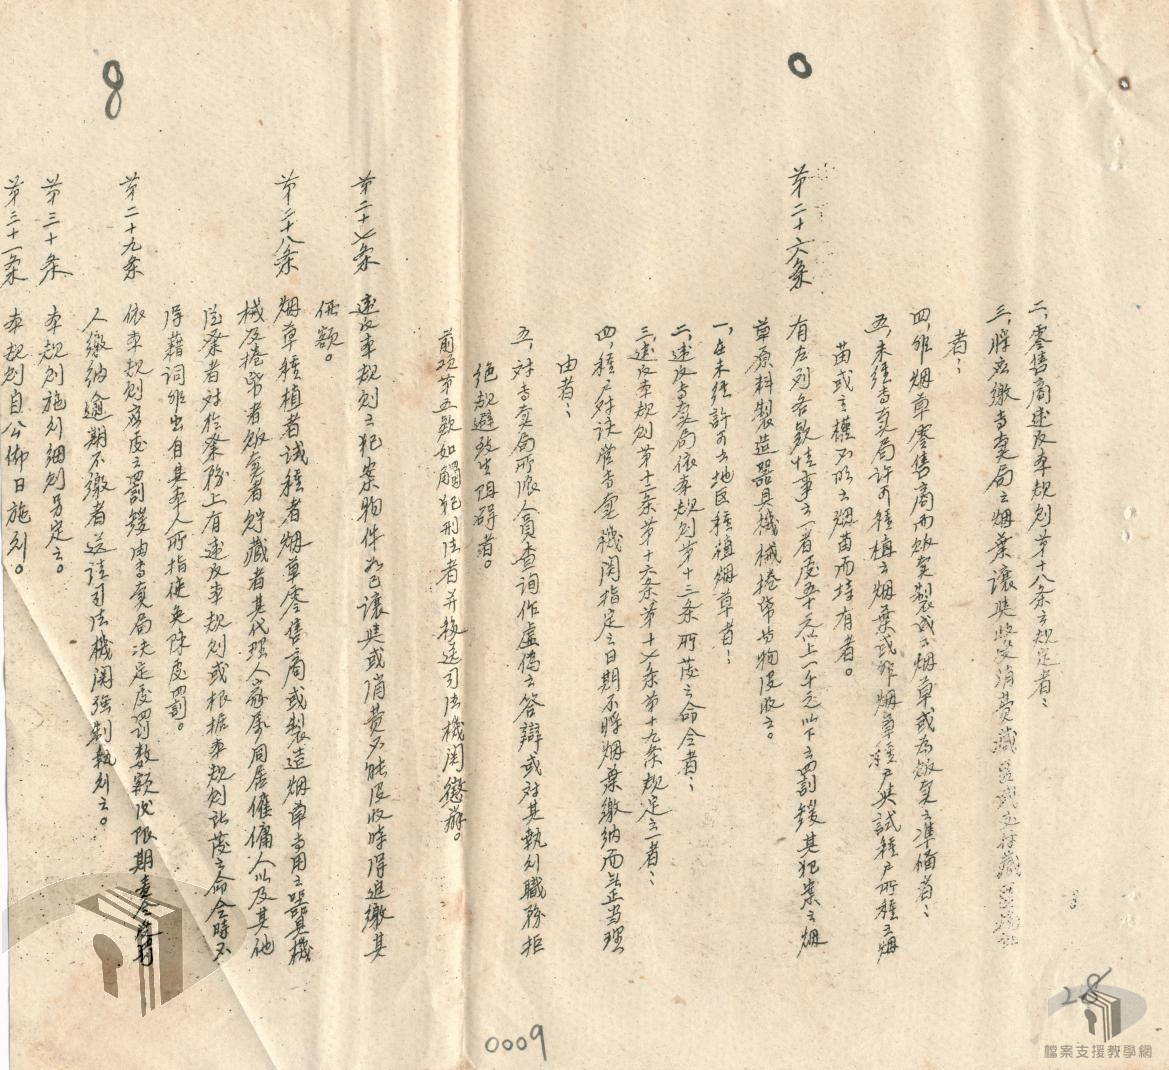 二、零售商違反本規則第十八条之規定者：
三、將应繳專賣局之烟葉讓與收受消費藏匿或
者：
四、非烟草零售商而販賣製成之烟草或為販賣之準備者：
五、未經專賣局許可種植之烟葉或非烟草種戶與試種戶所種之烟
苗或之種而持有者。
第二十六条 有左列各款情事之一者處五十元以上一千元以下之罰鍰其犯案之烟
草原料製造器具機械捲帋等物沒收之。
一、在未經許可之地区種植烟草者：
二、違反專賣局依本規則第十三条所發之命令者：
三、違反本規則第十二条第十六条第十七条第十九条規定之一者：
四、種戶对該管專賣機関指定之日期不將烟葉繳納而無正当理
由者：
五、对專賣局所派人員查詢作虛偽之答辯或对其執行職務拒
絕規避發生阻碍者。
前項第五款如觸犯刑法者并移送司法機関懲辦。
第二十七条 違反本規則之犯案物件如已讓與或消費不能沒收時得追繳其
価額。
第二十八条 烟草種植者試種者烟草零售商或製造烟草專用之器具機
械及捲帋者販賣者貯藏者其代理人家屬同居僱傭人以及其他
從業者对於業務上有違反本規則或根据本規則所發之命令時不
得藉詞非出自其本人所指使免除處罰。
第二十九条 依本規則应處之罰鍰由專賣局决定處罰数額後限期責令受罰
人繳納逾期不繳者送請司法機関強制執行之。
第三十条 本規則施行細則另定之。
第三十一条 本規則自公佈日施行。
8
0
28
0009
檔案支援教學網